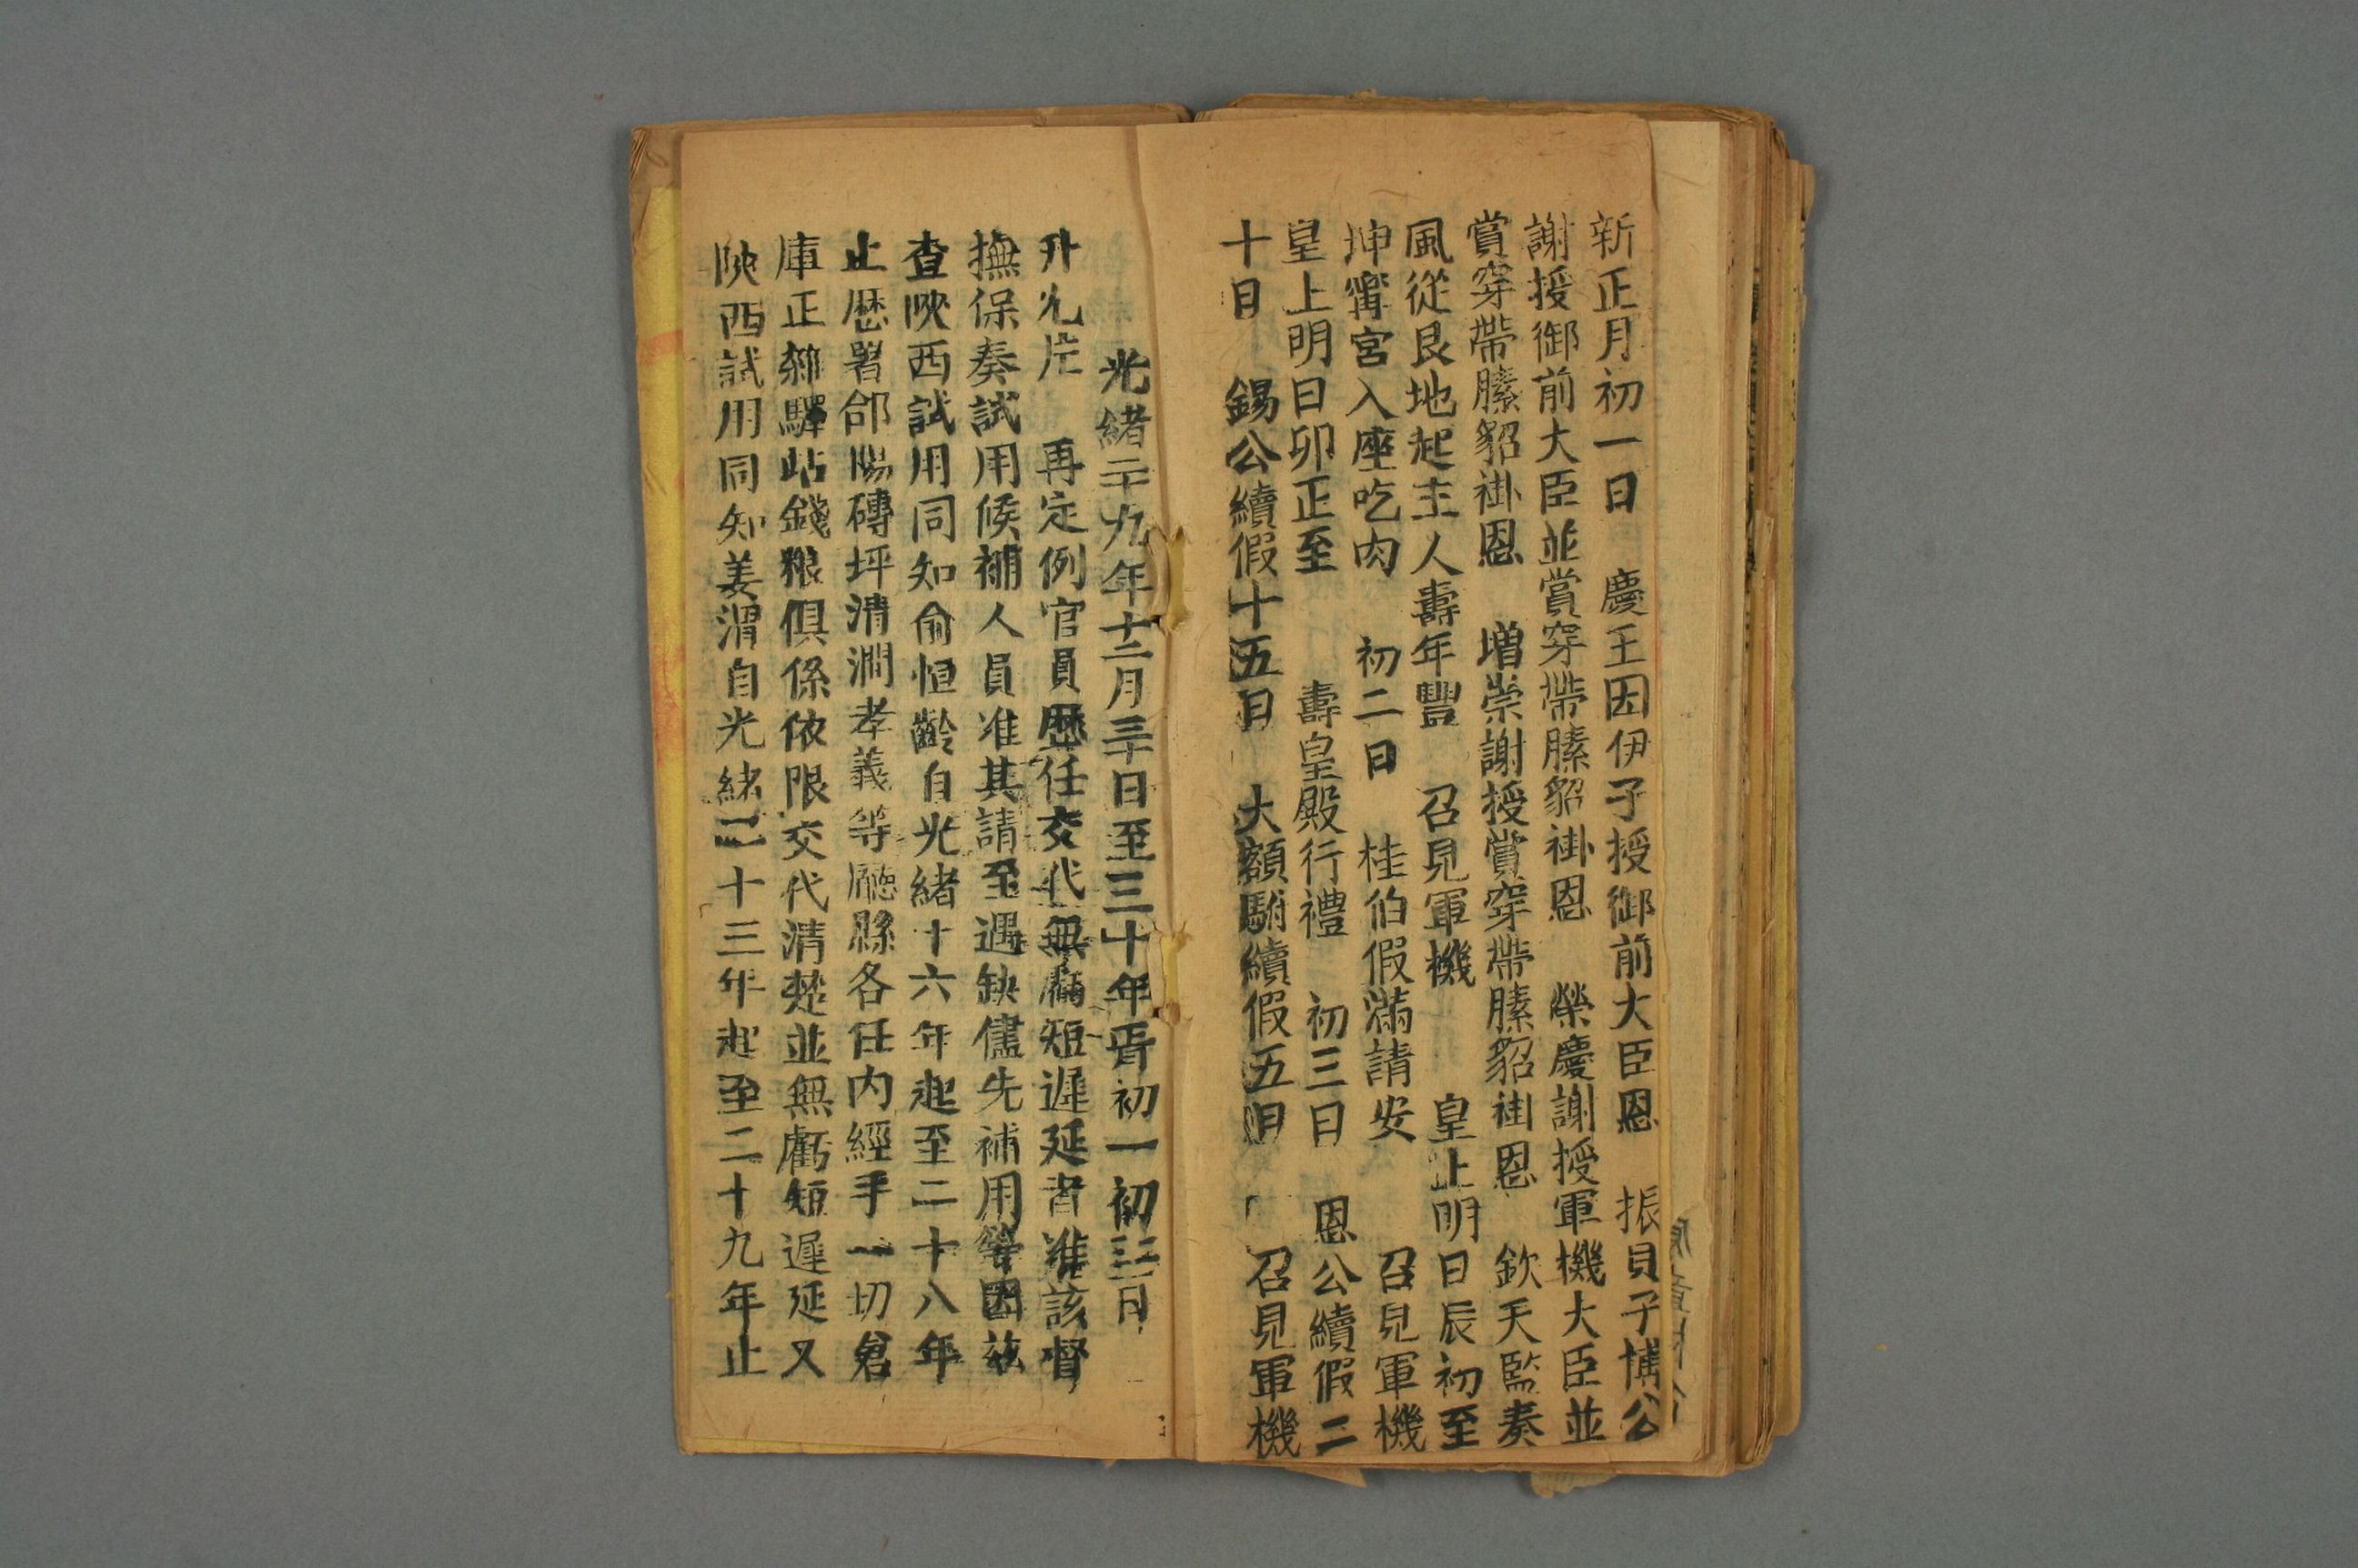 新正月初一日　慶王因伊子授御前大臣恩　振貝子博公
謝授御前大臣並賞穿帶膆貂褂恩　榮慶謝授軍機大臣並
賞穿帶膆貂褂恩　增崇謝授賞穿帶膆貂褂恩　欽天監奏
風從艮地起主人壽年豐　召見軍機　皇上明日辰初至
坤甯宮入座吃肉　初二日　桂伯假滿請安　召見軍機
皇上明日卯正至　壽皇殿行禮　初三日　恩公續假二
十日　錫公續假十五日　大額駙續假五日　召見軍機
光緒二十九年十二月三十日至三十年正月初一初二三日
升允片　再定例官員歷任交代無虧短遲延者准該督
撫保奏試用候補人員准其請至遇缺儘先補用等因茲
查陝西試用同知俞恒齡自光緒十六年起至二十八年
止歷署郃陽磚坪清澗孝義等廳縣各任內經手一切倉
庫正雜驛站錢粮俱係依限交代清楚並無虧短遲延又
陝西試用同知姜渭自光緒二十三年起至二十九年止